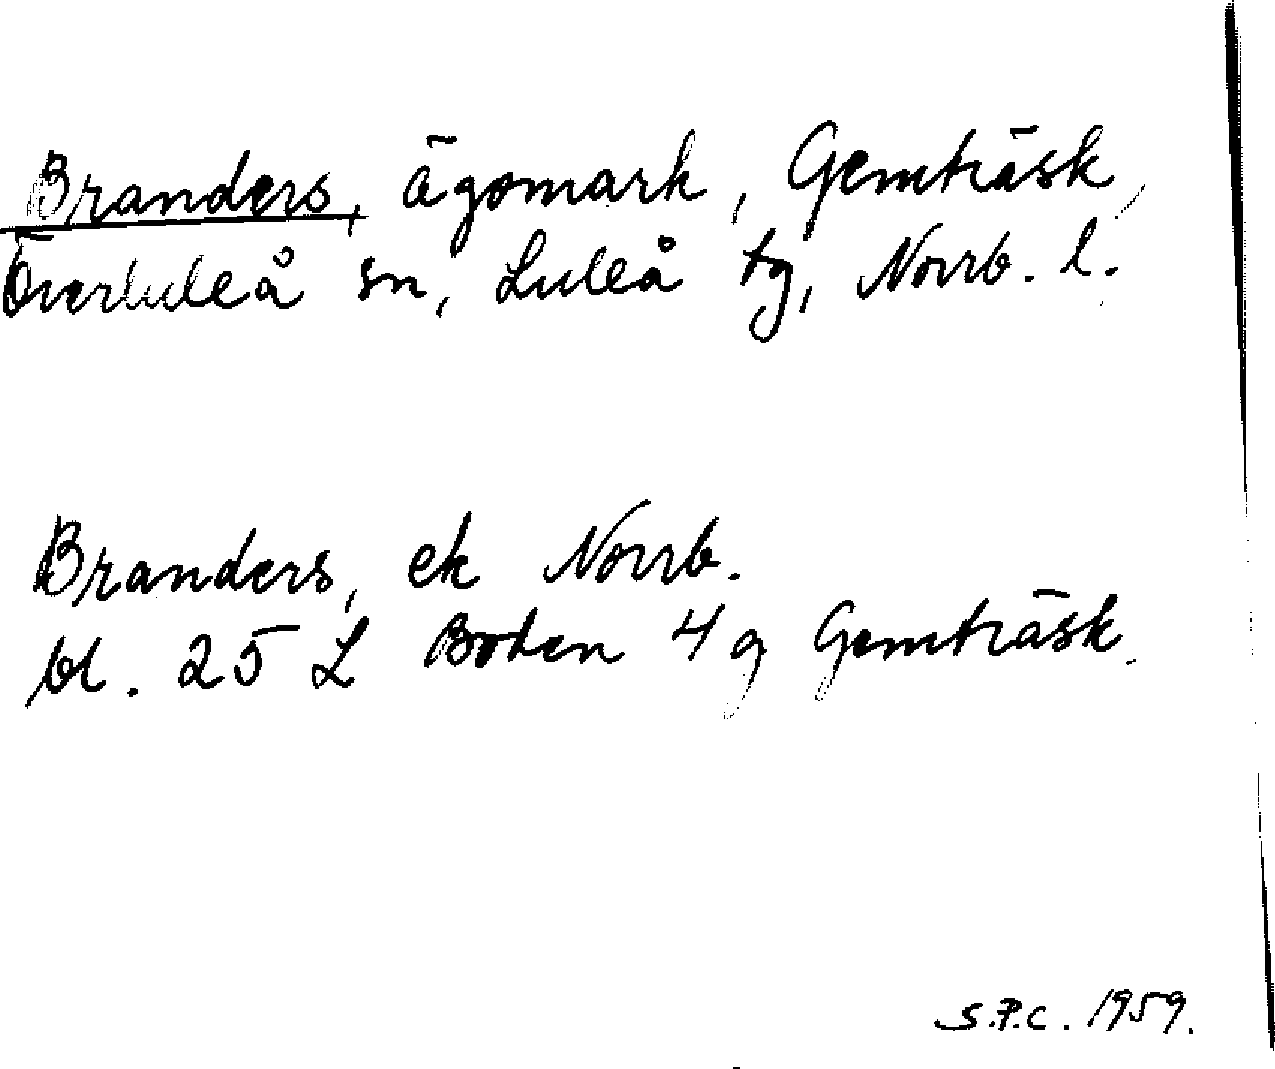 Branders, ägomark, Gemträsk,
Överluleå sn, Luleå tg, Norrb. l.
Branders, ek Norrb.
bl. 25 L Boden 4 g Gemträsk.
S.P.C. 1959.